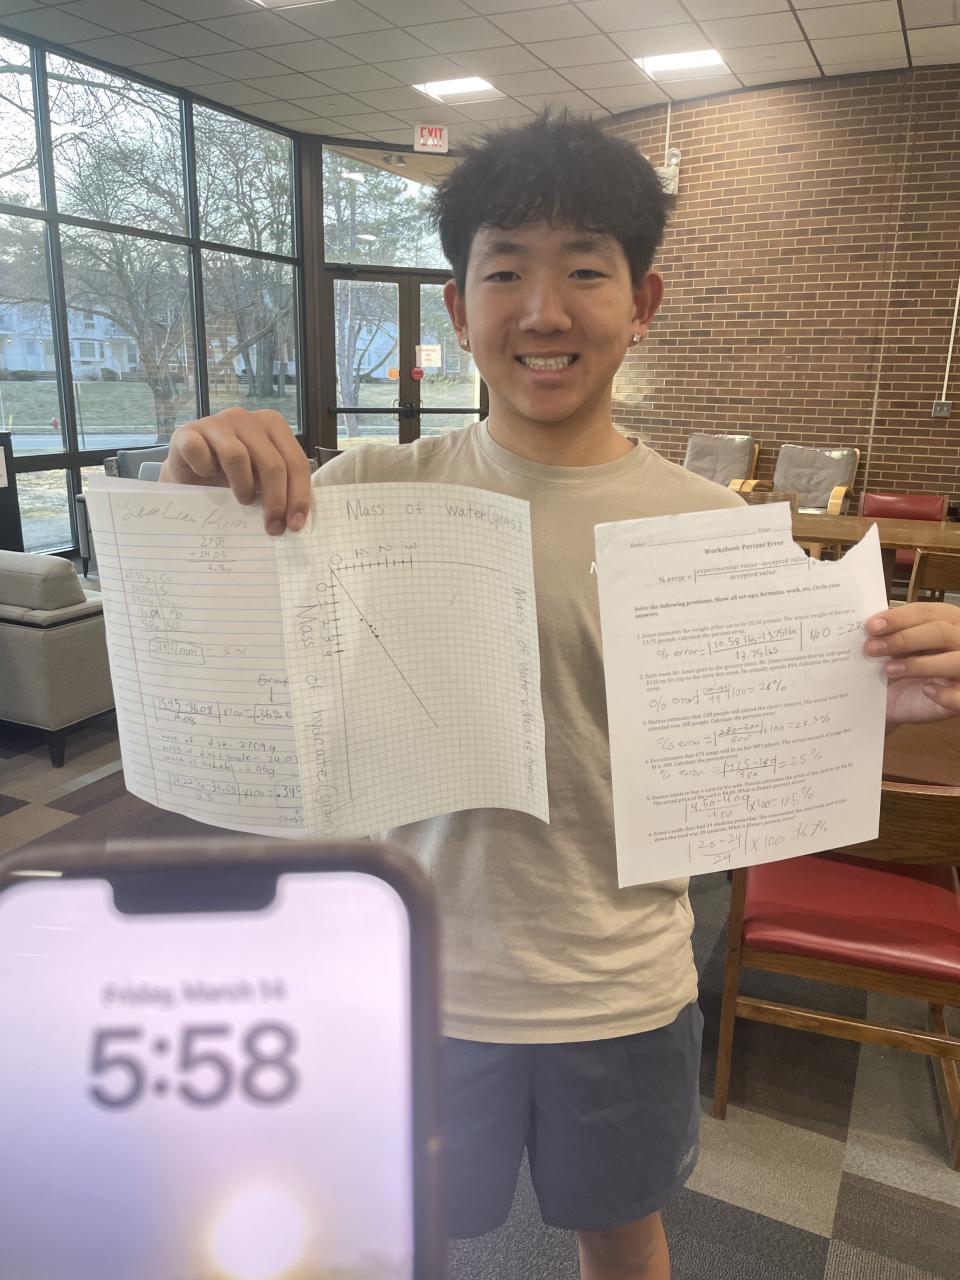 EXIT
27.09
- 24.03
Cu
S
= 36.08
Group
35.95-36.08
36.08
x100=.36%
mass of dish - 27.09g
mass of dish + sample - 24.03
mass of hydrate - 2.06g
36.08
x100=.34%
class
Mass of water(grams)
0 1 2 3
0 1 2 3 4
Mass of hydrate (grams)
Mass of Water v. Mass of hydrate
Name:
Date:
Worksheet: Percent Error
% error = | experimental value-accepted value
accepted value
Solve the following problems. Show all set-ups, formulas, work, etc. Circle your
answers.
1. Jesse estimates the weight of her cat to be 10.50 pounds. The actual weight of the cat is
13.75 pounds. Calculate the percent error.
% error= | 10.50 lbs-13.75lbs | 100 =
13.75lbs
2. Each week Mr. Jones goes to the grocery store. Mr. Jones estimates that he will spend
$120 on his trip to the store this week. He actually spends $94. Calculate the percent
error.
% error 120-94 100= 28%
94
3. Marcus estimates that 230 people will attend the choir's concert. The actual total that
attended was 300 people. Calculate the percent error.
% error = | 230-300 | x100 = 23.3%
300
4. Eva estimates that 475 songs will fit on her MP3 player. The actual amount of songs that
fit is 380. Calculate the percent error.
% error = | 475-380 | = 25%
380
5. Dennis wants to buy a card for his wife. Dennis estimates the price of the card to be $4.50.
The actual price of the card is $4.00. What is Dennis's percent error?
| 4.50-4.00 | x100=12.5%
4.00
6. Elena's math class had 24 students yesterday. She miscounted the class total and wrote
down the total was 20 students. What is Elena's percent error?
| 20-24 | x100 = 16.7%
24
Friday, March 14
5:58